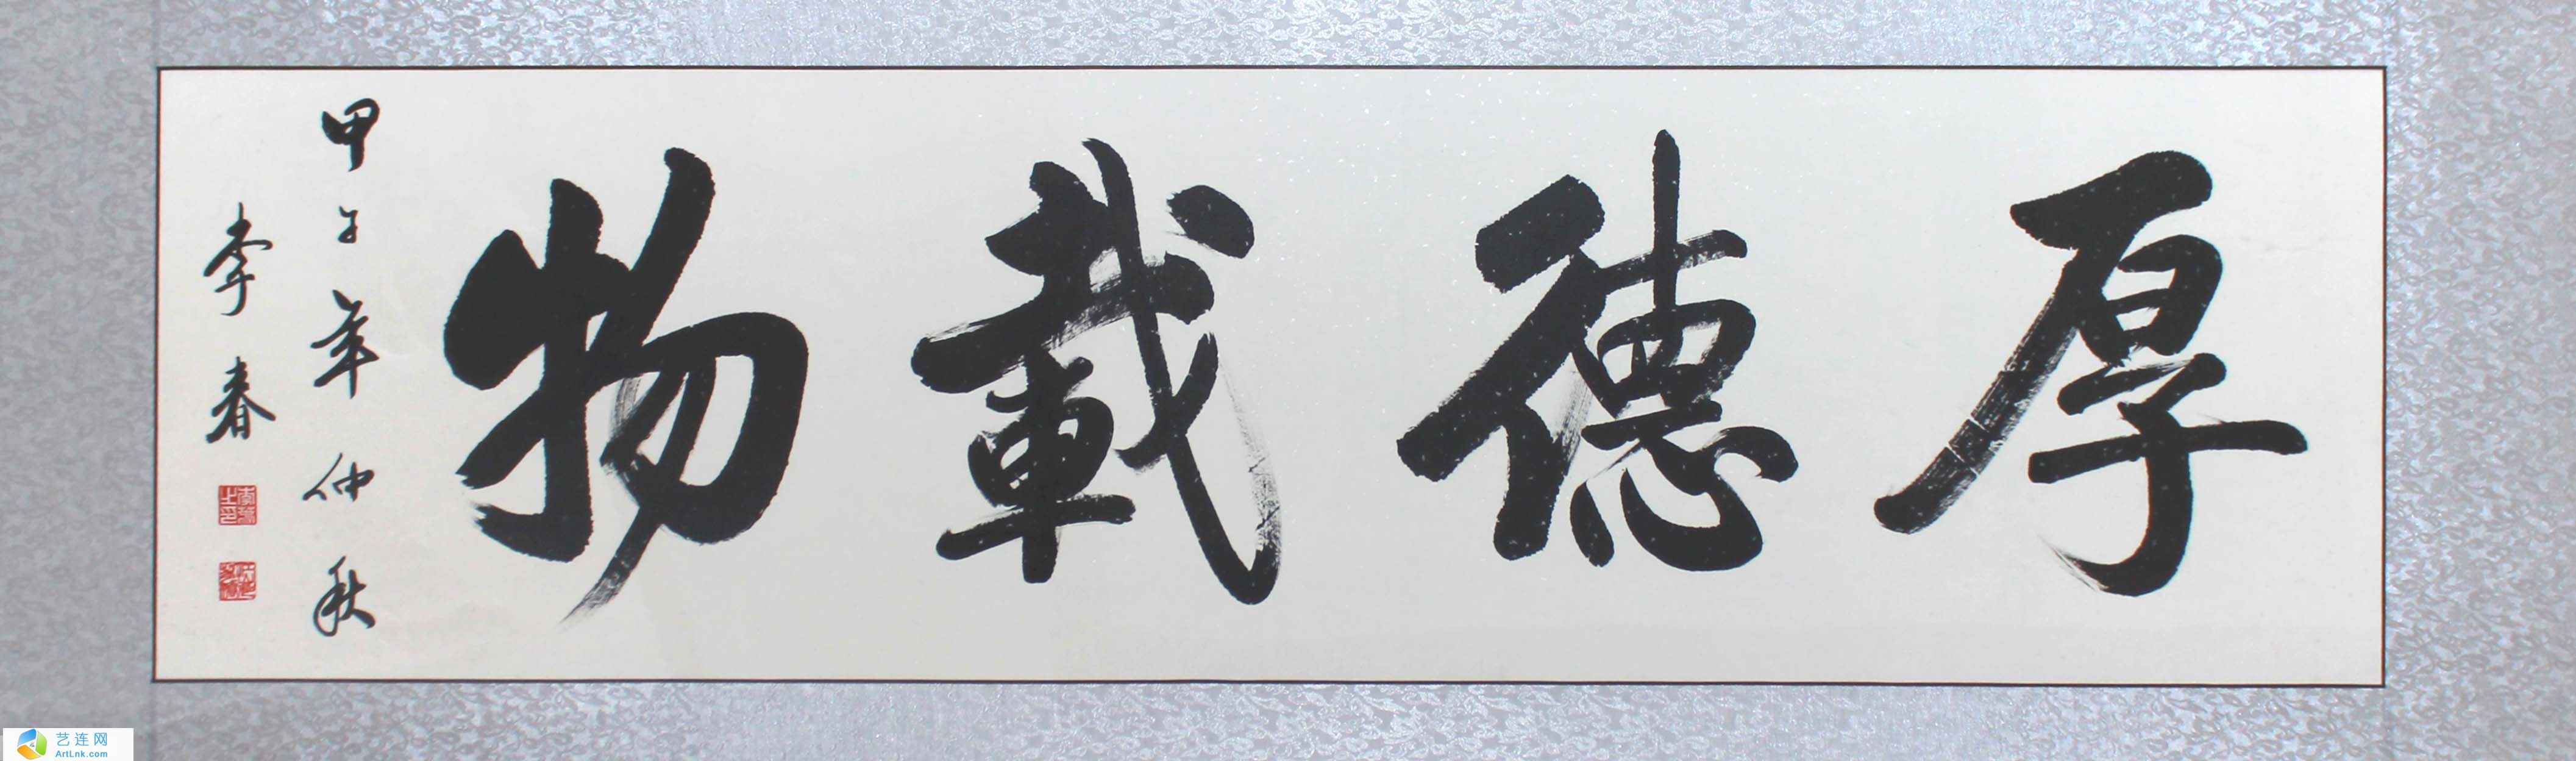 厚德載物
甲午年仲秋
李春
艺连网
ArtLnk.com